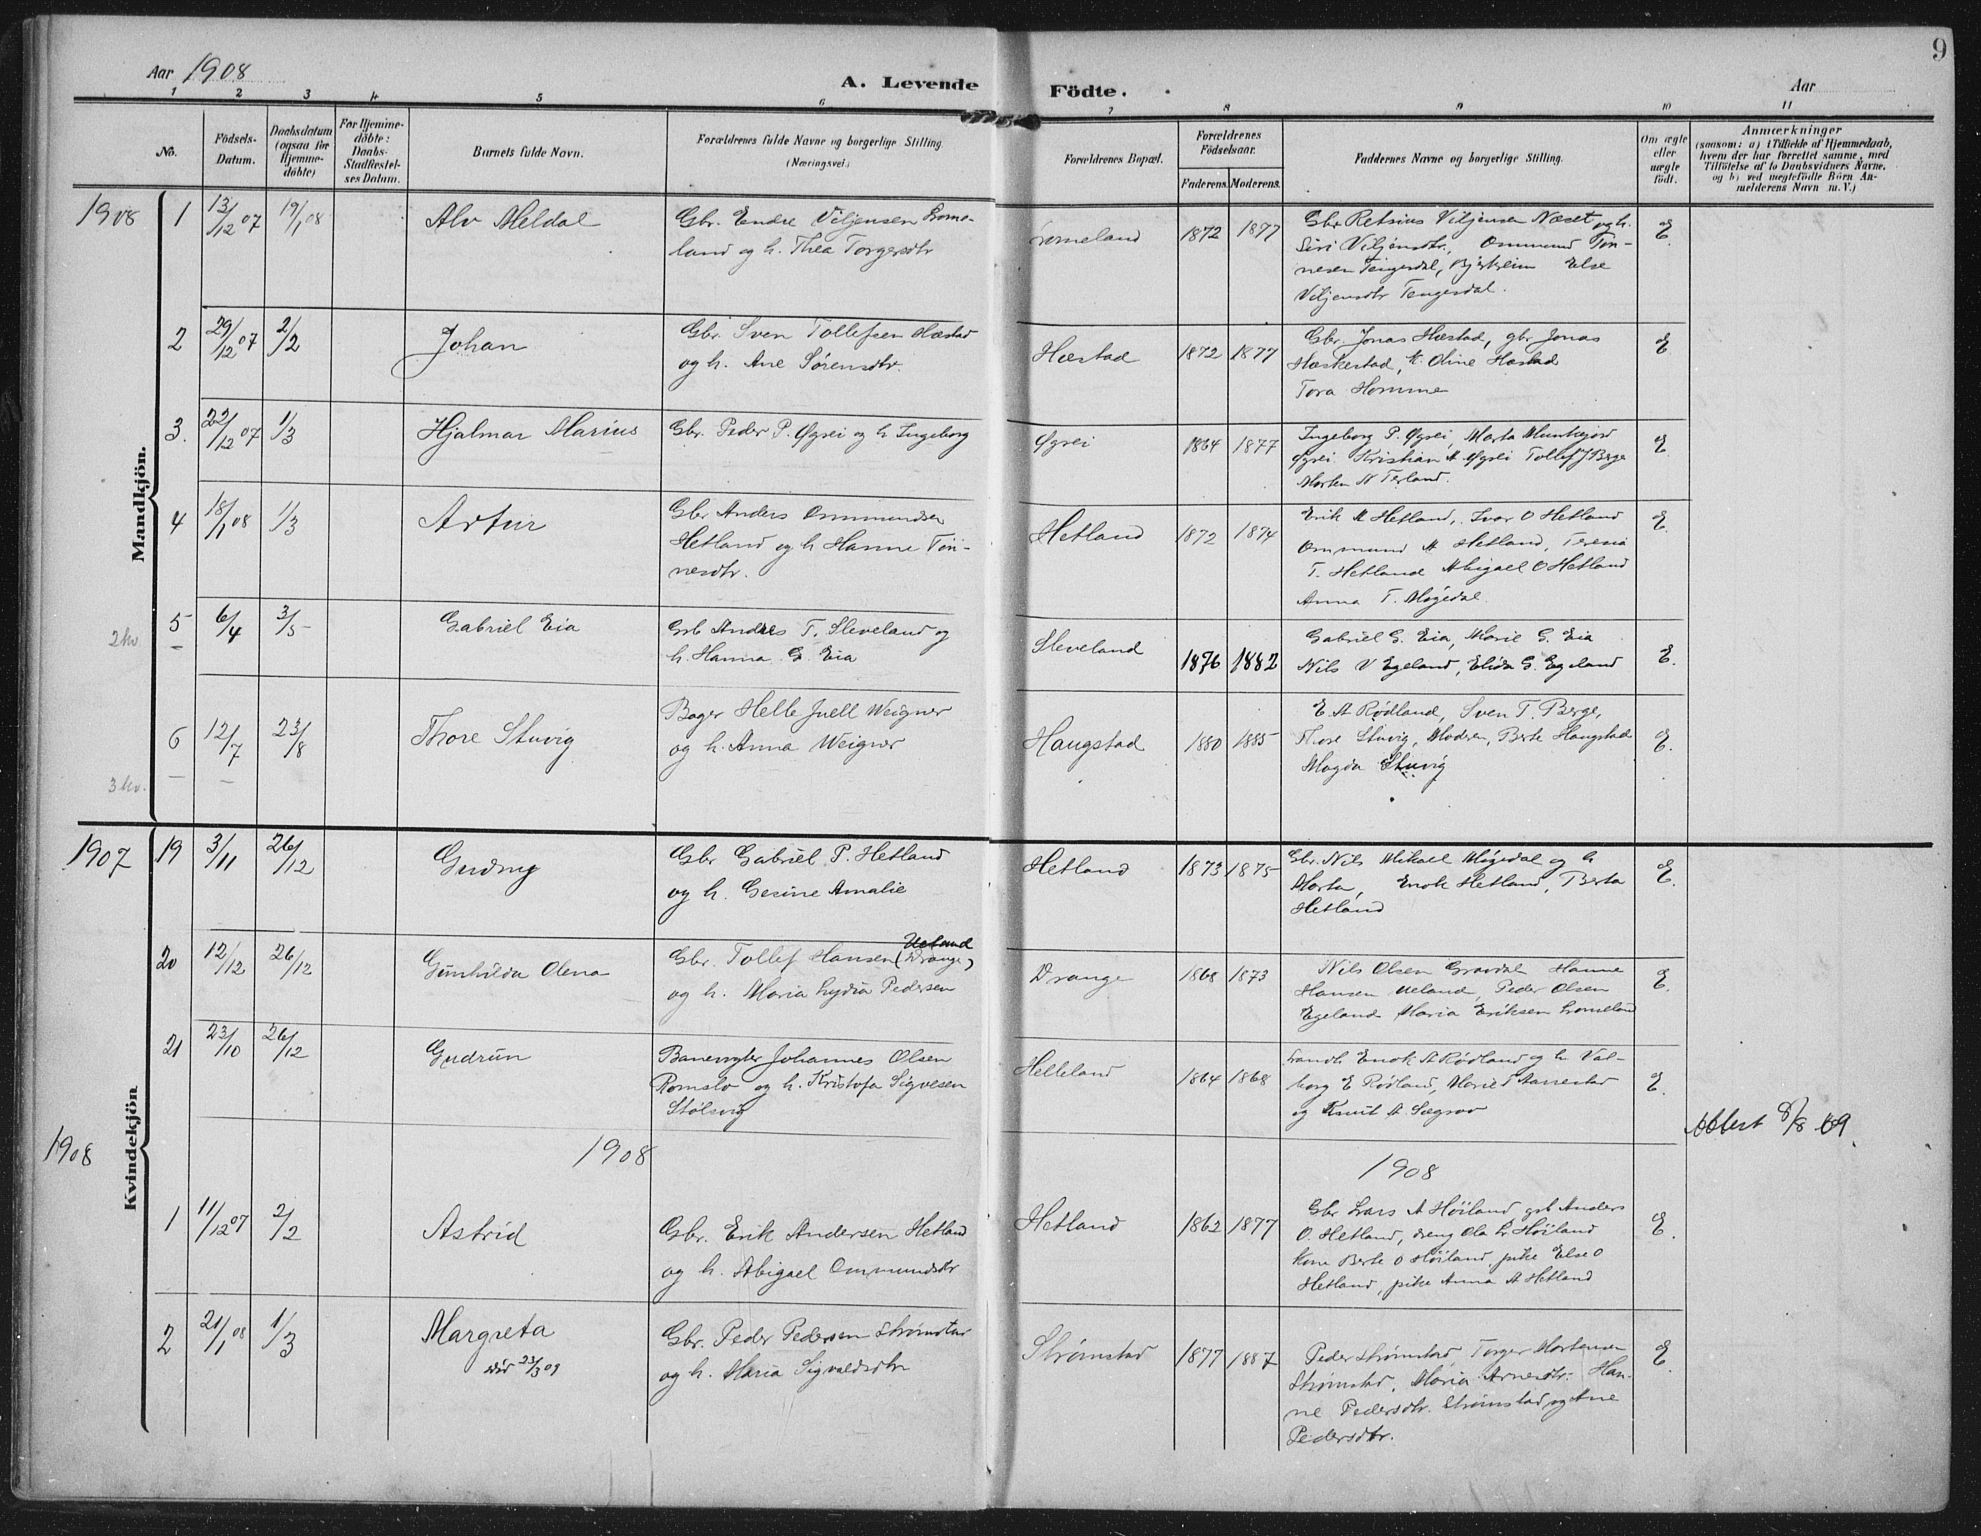 9
Aar 1908
A. Levende Födte.
Aar
1 2 3 4 5 6 7 8 9 10 11
No.
Födsels-Datum.
Daabsdatum (ogsaa for Hjemme-döbte)
For Hjemme-döbte: Daabs-Stadfæstel-ses Datum.
Barnets fulde Navn.
Forældrenes fulde Navne og borgerlige Stilling (Næringsvei.)
Forældrenes Bopæl.
Forældrenes Födselsaar.
Faderens. Moderens.
Faddernes Navne og borgerlige Stilling.
Om ægte eller uægte født.
Anmærkninger
(saasom: a) i Tilfælde af Hjemmedaab,
hvem der har forrettet samme, med
Tilföielse af to Daabsvidners Navne,
og b) ved uægtefödte Börn An-
melderens Navn m. V.)
Mandkjön.
1908 1 13/12 07 19/1 08 Alv Meldal
Gbr. Endre Viljensen Lome-
land og h. Thea Torgersdtr
Lomeland 1872 1877
Gbr Retsius Viljensen Næset og h.
Siri Viljensdtr, Ommund Tøn-
nesen Tengesdal, Bjerkreim Else
Viljensdtr Tengesdal.
E.
2 29/12 07 2/2 Johan
Gbr. Sven Tollefsen Hæstad
og h. Ane Sørensdtr.
Hæstad 1872 1877
Gbr. Jonas Hæstad, gbr Jonas
Hæskestad, k. Oline Hæstad
Tora Homme
E
3. 22/12 07 1/3 Hjalmar Marius
Gbr. Peder P. Øgrei og h Ingeborg
Øgrei 1864 1877
Ingeborg P. Øgrei, Marta Munkejord
Øgrei Kristian A Øgrei Tollef J Berge
Morten N Terland.
E.
4 18/1 08 1/3 Artur
Gbr Anders Ommundsen
Hetland og h Hanne Tøn-
nesdtr.
Hetland 1872 1874
Erik A Hetland, Ivar O Hetland
Ommund A Hetland, Teresia
T. Hetland Abigael O Hetland
Anna T. Møgedal.
E.
5 6/4 3/5 Gabriel Eia
2 kv
Grb Andres T. Sleveland og
h. Hanna G. Eia
Sleveland 1876 1882
Gabriel G. Eia, Marie G. Eia
Nils V Egeland, Elida G. Egeland
E.
6 12/7 23/8 Thore Stuvig
3 kv.
Bager Helle Juell Weigner
og h. Anna Weigner
Haugstad 1880 1885
E A Rödland, Sven T. Berge,
Thore Stuvig, Moderen, Berte Haugstad
Magda Stuvig
E.
Kvindekjön
1907 19 3/11 26/12 Gudny
Gbr Gabriel P. Hetland
og h. Gesine Amalie
Hetland 1873 1875
Gbr. Nils Mikael Møgedal og h
Marta, Enok Hetland, Berta
Hetland
E.
20 12/12 26/12 Gunhilda Olena
Gbr. Tollef Hansen (Drange) Ueland
og h. Maria Lydia Pedersen
Drange 1868 1873
Nils Olsen Gravdal Hanne
Hansen Ueland, Peder Olsen
Egeland Maria Eriksen Lomeland
E.
21 23/10 26/12 Gudrun
Banevogter Johannes Olsen
Romslo og h. Kristofa Sigvesen
Stølsvig
Helleland 1864 1868
Landh. Enok A Rødland og h Val-
borg E Rødland, Marie T Aarrestad
og Knut A. Sægrov
E.
Attest 8/8 69.
1908 1908 1908
1 11/12 07 2/2 Astrid
Gbr. Erik Andersen Hetland
og h. Abigael Ommundsdtr
Hetland 1862 1877
Gbr Lars A Høiland grb Anders
O. Hetland, dreng Ola L Høiland
Kone Berte O Høiland pike Else O
Hetland, pike Anna A Hetland
E.
2 21/1 08 1/3 Margreta
död 23/3 09
Gbr. Peder Pedersen Strømstad
og h. Maria Sigvaldsdtr
Strømstad 1877 1887
Peder Strømstad Torger Mortensen
Strømstad, Maria Arnesdtr. Han-
ne Pedersdtr. Strømstad og Ane
Pedersdtr.
E.